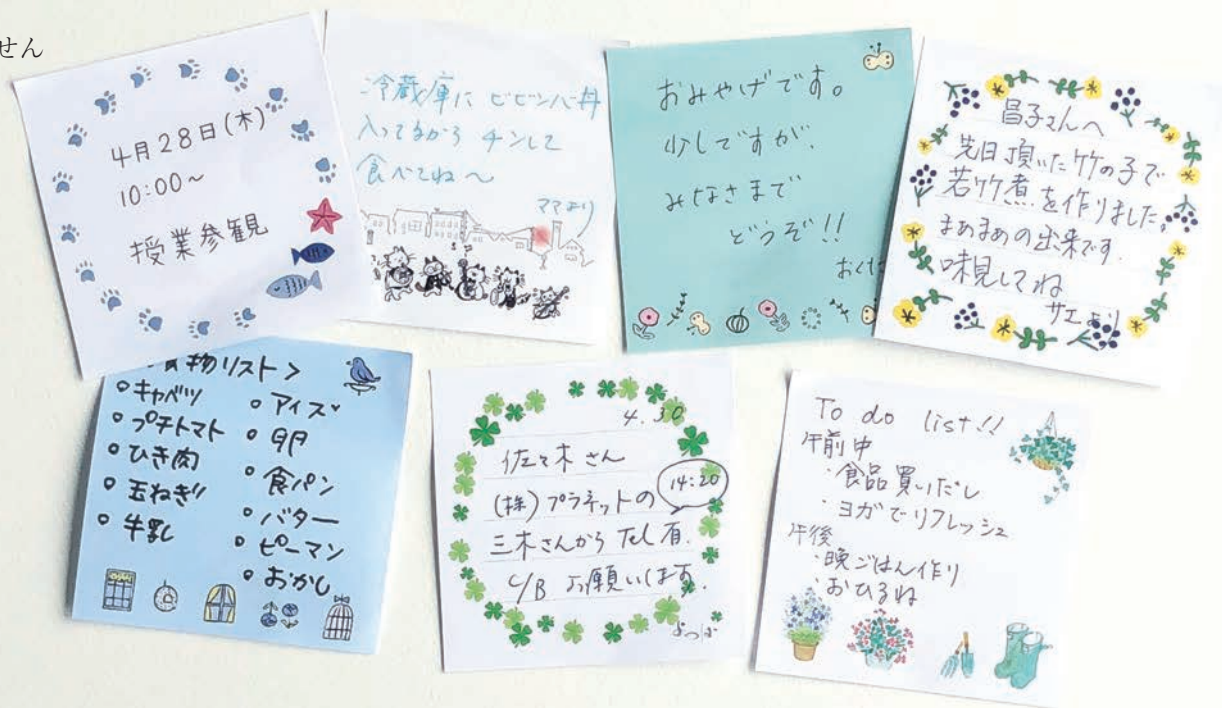 せん
4月28日(木)
10:00～
授業参観
冷蔵庫に ビビンバ丼
入ってるから チンして
食べてね～
ママより
おみやげです。
少しですが、
みなさまで
どうぞ!!
昌子さんへ
先日頂いた竹の子で
若竹煮を作りました。
まあまあの出来です。
味見してね
サエより
物リスト>
○キャベツ
○プチトマト
○ひき肉
○玉ねぎ
○牛乳
○アイス
○卵
○食パン
○バター
○ピーマン
○おかし
4.30
佐々木さん
14:20
(株)プラネットの
三木さんから Tel有.
C/B お願いします.
よつば
To do list!!
午前中
・食品買いだし
・ヨガでリフレッシュ
午後
・晩ごはん作り
・おひるね